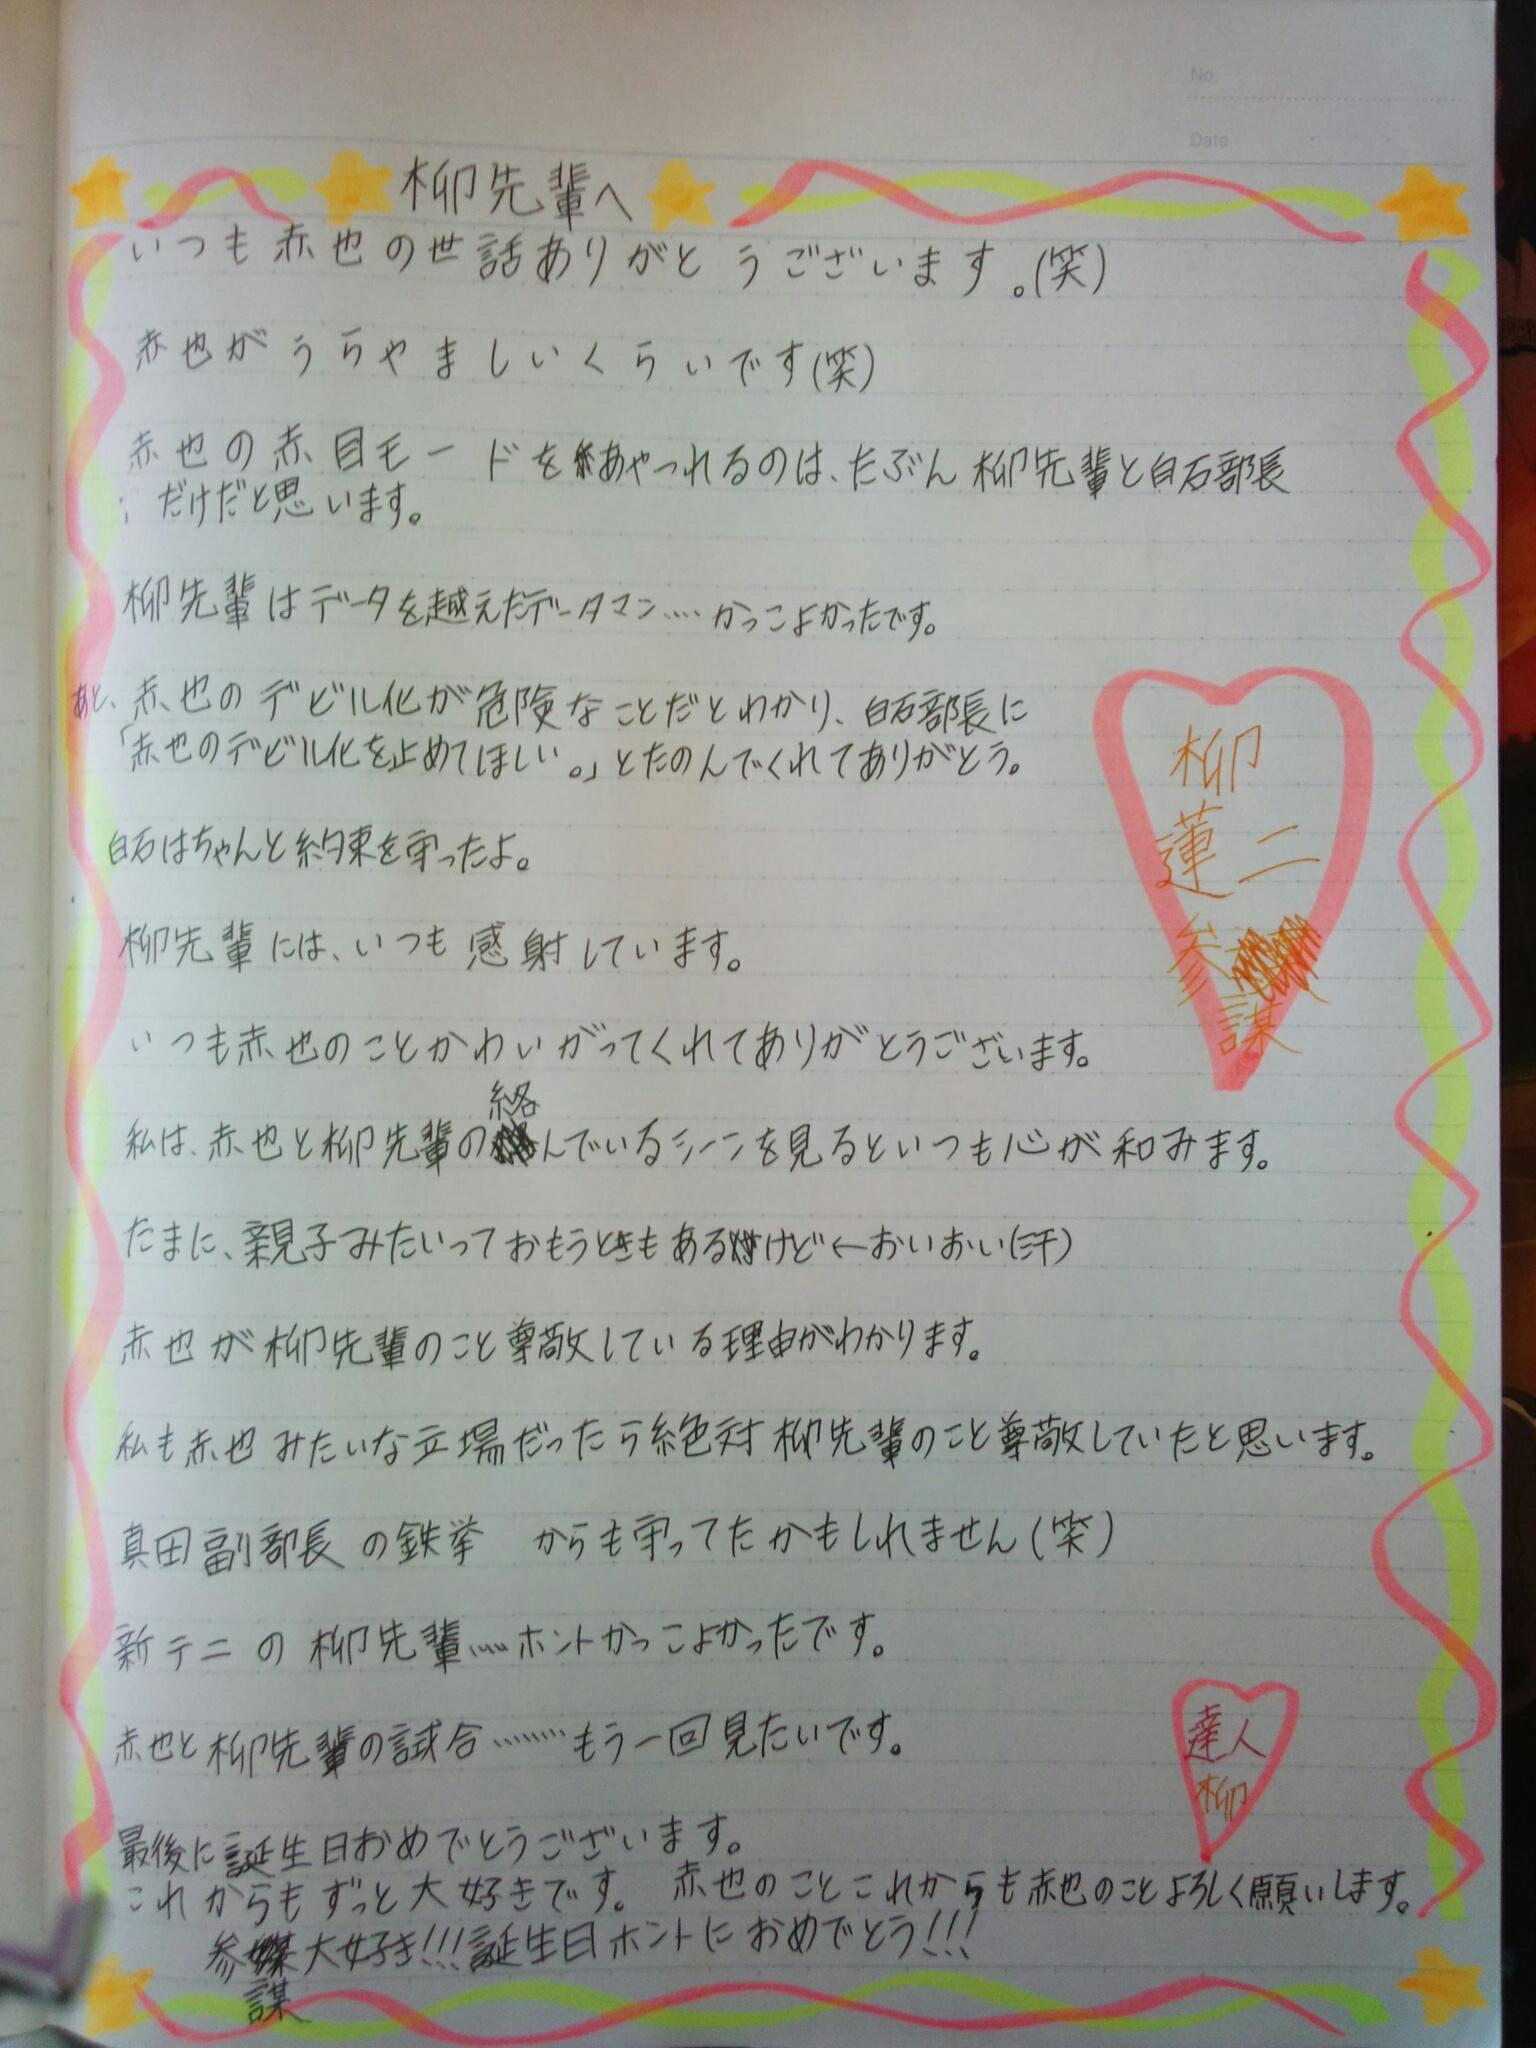 No.
Date
柳先輩へ
いつも赤也の世話ありがとうございます。(笑)
赤也がうらやましいくらいです(笑)
赤也の赤目モードをあやつれるのは、たぶん柳先輩と白石部長
だけだと思います。
柳先輩はデータを越えたデータマン‥‥かっこよかったです。
あと、赤也のデビル化が危険なことだとわかり、白石部長に
「赤也のデビル化を止めてほしい。」とたのんでくれてありがとう。
白石はちゃんと約束を守ったよ。
柳先輩には、いつも感射しています。
いつも赤也のことかわいがってくれてありがとうございます。
私は、赤也と柳先輩の絡んでいるシーンを見るといつも心が和みます。
たまに、親子みたいっておもうときもあるけど←おいおい(汗)
赤也が柳先輩のこと尊敬している理由がわかります。
私も赤也みたいな立場だったら絶対柳先輩のこと尊敬していたと思います。
真田副部長の鉄挙 からも守ってたかもしれません(笑)
新テニの柳先輩‥‥ホントかっこよかったです。
赤也と柳先輩の試合‥‥‥‥もう一回見たいです。
最後に誕生日おめでとうございます。
これからもずっと大好きです。 赤也のことこれからも赤也のことよろしく願いします。
参謀大好き!!!誕生日ホントにおめでとう!!!
柳
蓮二
参
謀
達人
柳